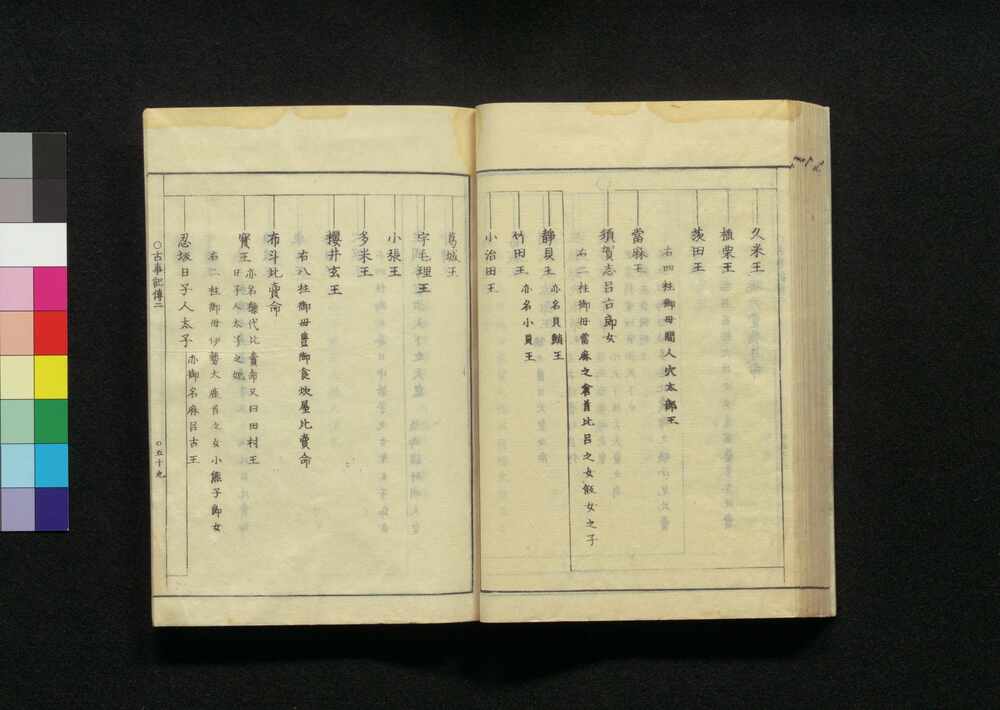 久米王
植栗王
茨田王
右四柱御母間人穴太部王
當麻王
須賀志呂古郎女
右二柱御母當麻之倉首比呂之女飯女之子
靜貝王 亦名貝鮹王
竹田王 亦名小貝王
小治田王
葛城王
宇毛理王
小張王
多米王
櫻井玄王
右八柱御母豊御食炊屋比賣命
布斗比賣命
寶王 亦名糠代比賣命又曰田村王
日子人太子之妃
右二柱御母伊勢大鹿首之女小熊子郎女
忍坂日子人太子 亦御名麻呂古王
○古事記傳二
○五十九